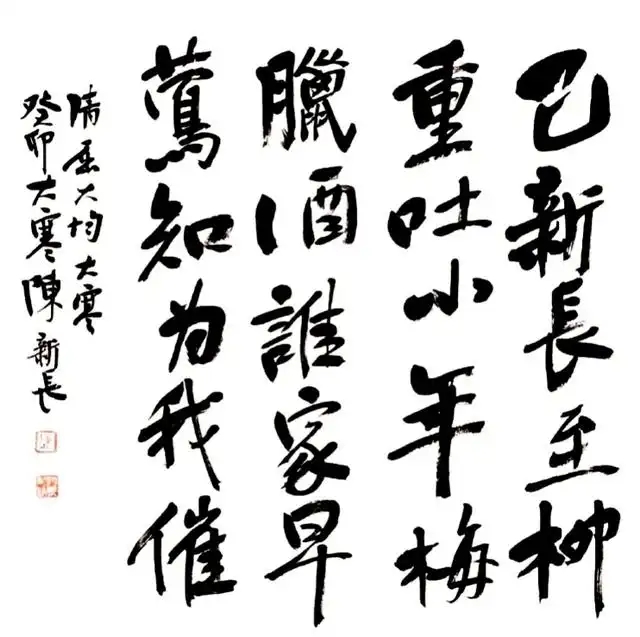 已新長至柳
重吐小年梅
臘酒誰家早
鶯知為我催
清屈大均大寒
癸卯大寒陳新長